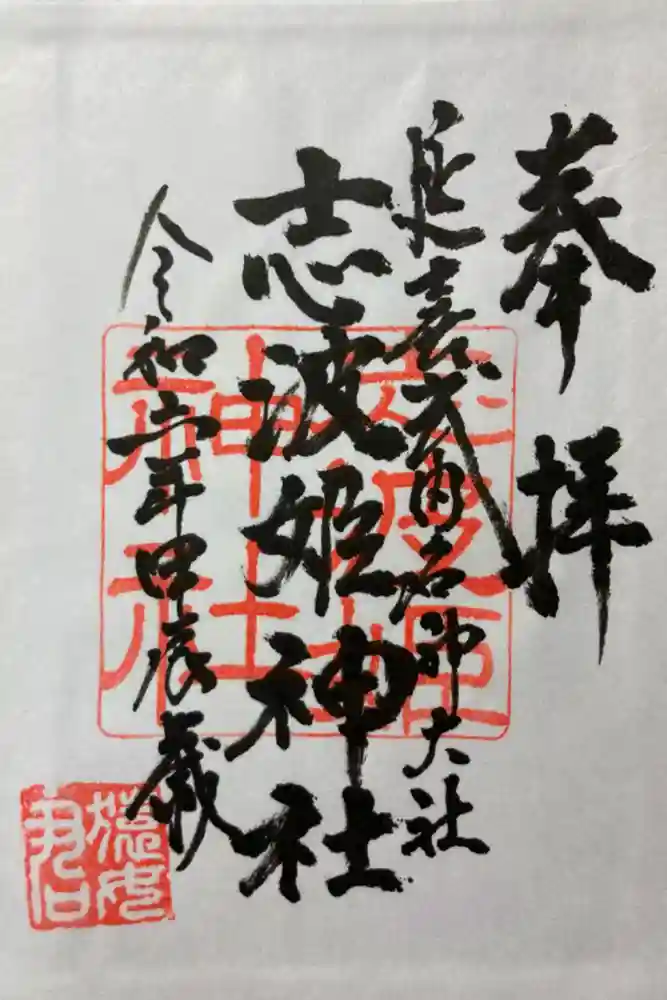 奉拝
延喜式内名神大社
志波姫神社
令和六年甲辰歳
志波姫神社